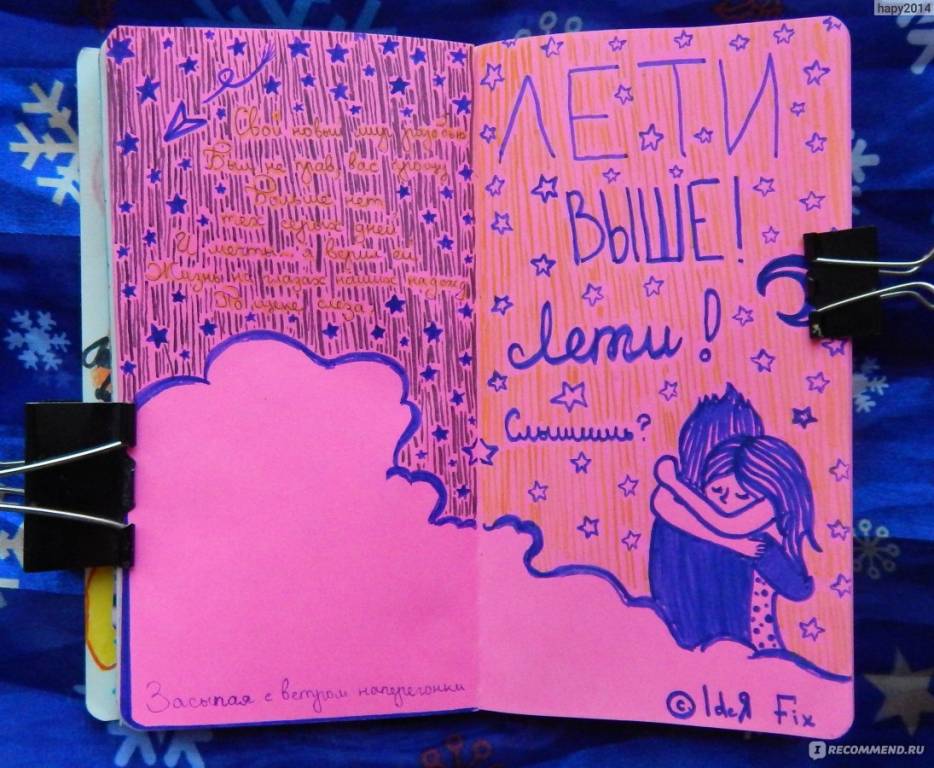 hapy2014
Свой новый мир разобью
Был не прав, вас
Больше нет
тех серых дней
И мечты... я верил ей
Жизнь на глазах наших
По щеке слеза.
Засыпая с ветром наперегонки
ЛЕТИ
ВЫШЕ!
Лети!
Слышишь?
© IdeЯ Fix
I RECOMMEND.RU